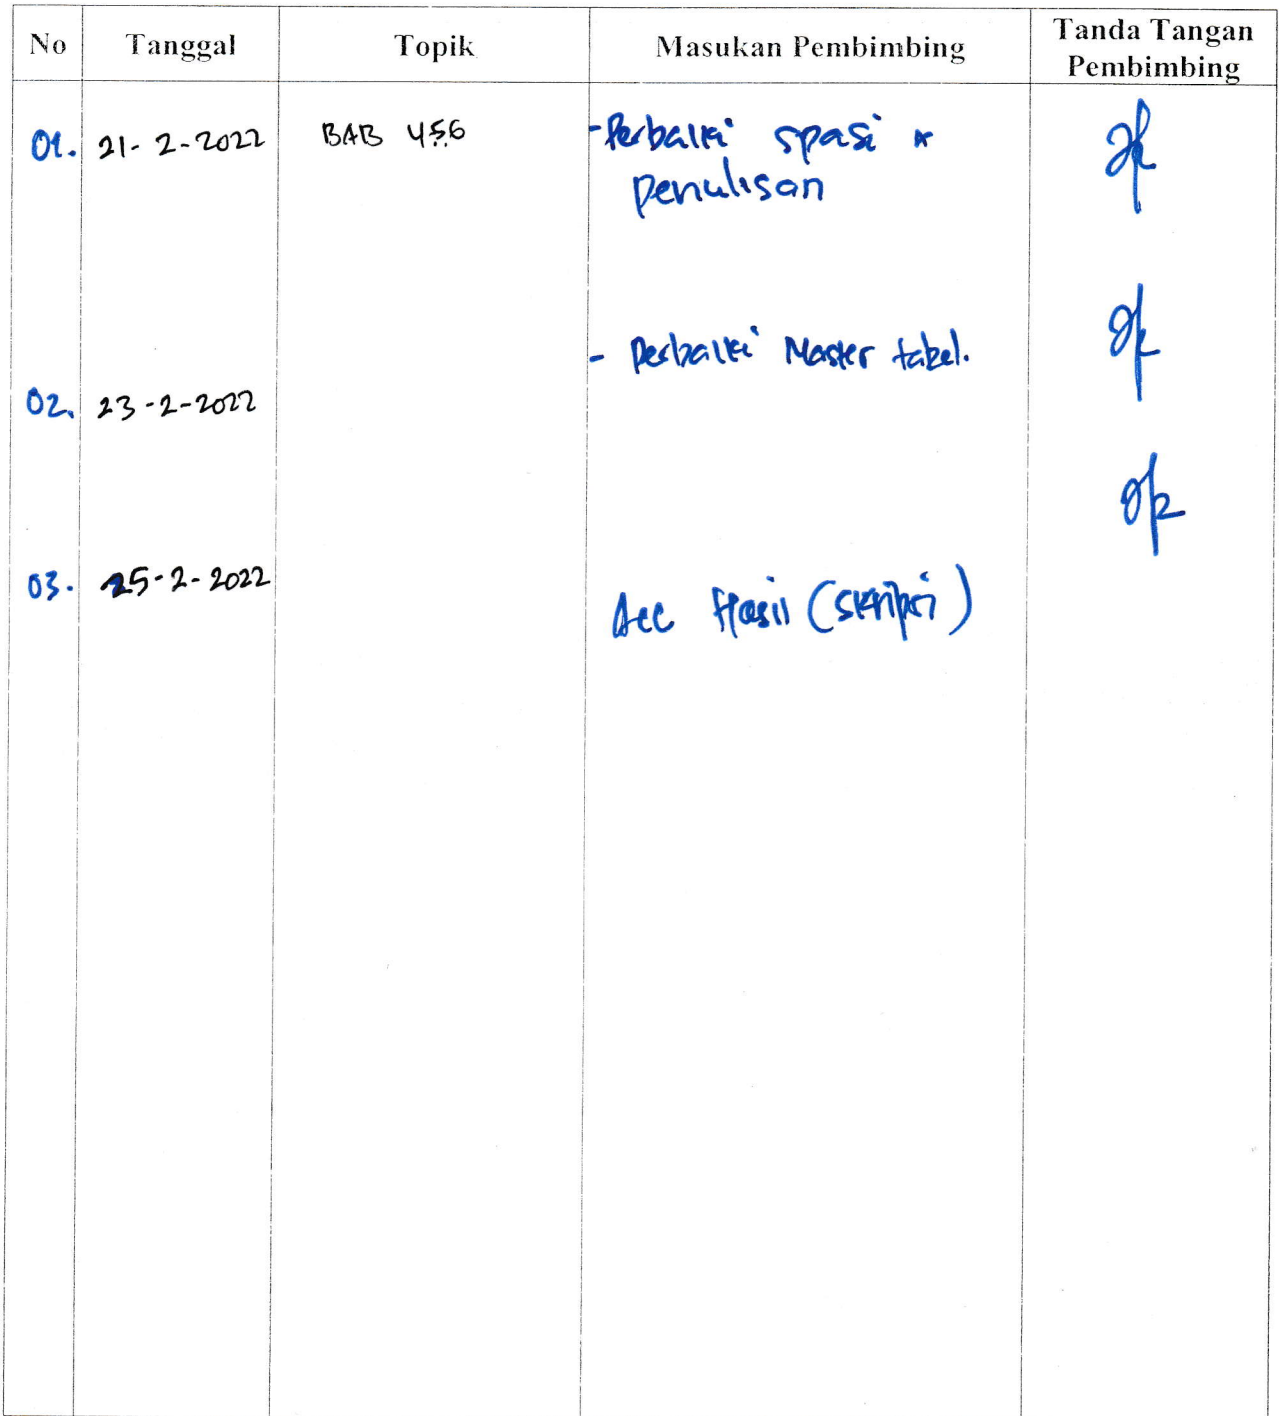 No Tanggal Topik Masukan Pembimbing Tanda Tangan
Pembimbing
01. 21-2-2022 BAB 456 - Perbaiki spasi &
penulisan
- Perbaiki Master tabel.
02. 23-2-2022
03. 25-2-2022
Acc Hasil (skripsi)